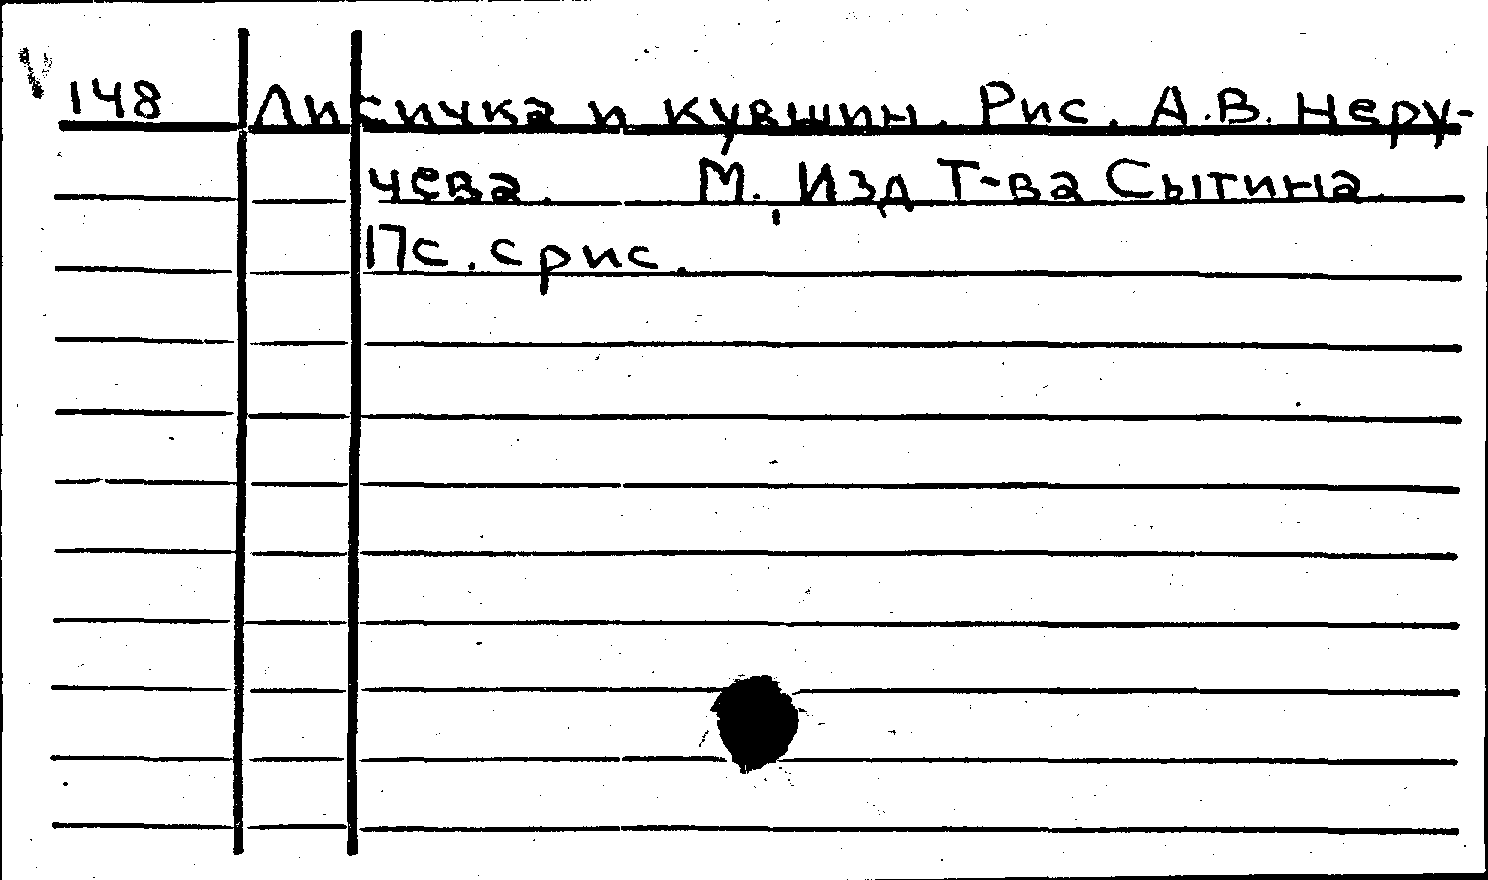 148 Лисичка и кувшин. Рис. А.В. Неру-
чева. М., Изд Т-ва Сытина.
17с. с рис.